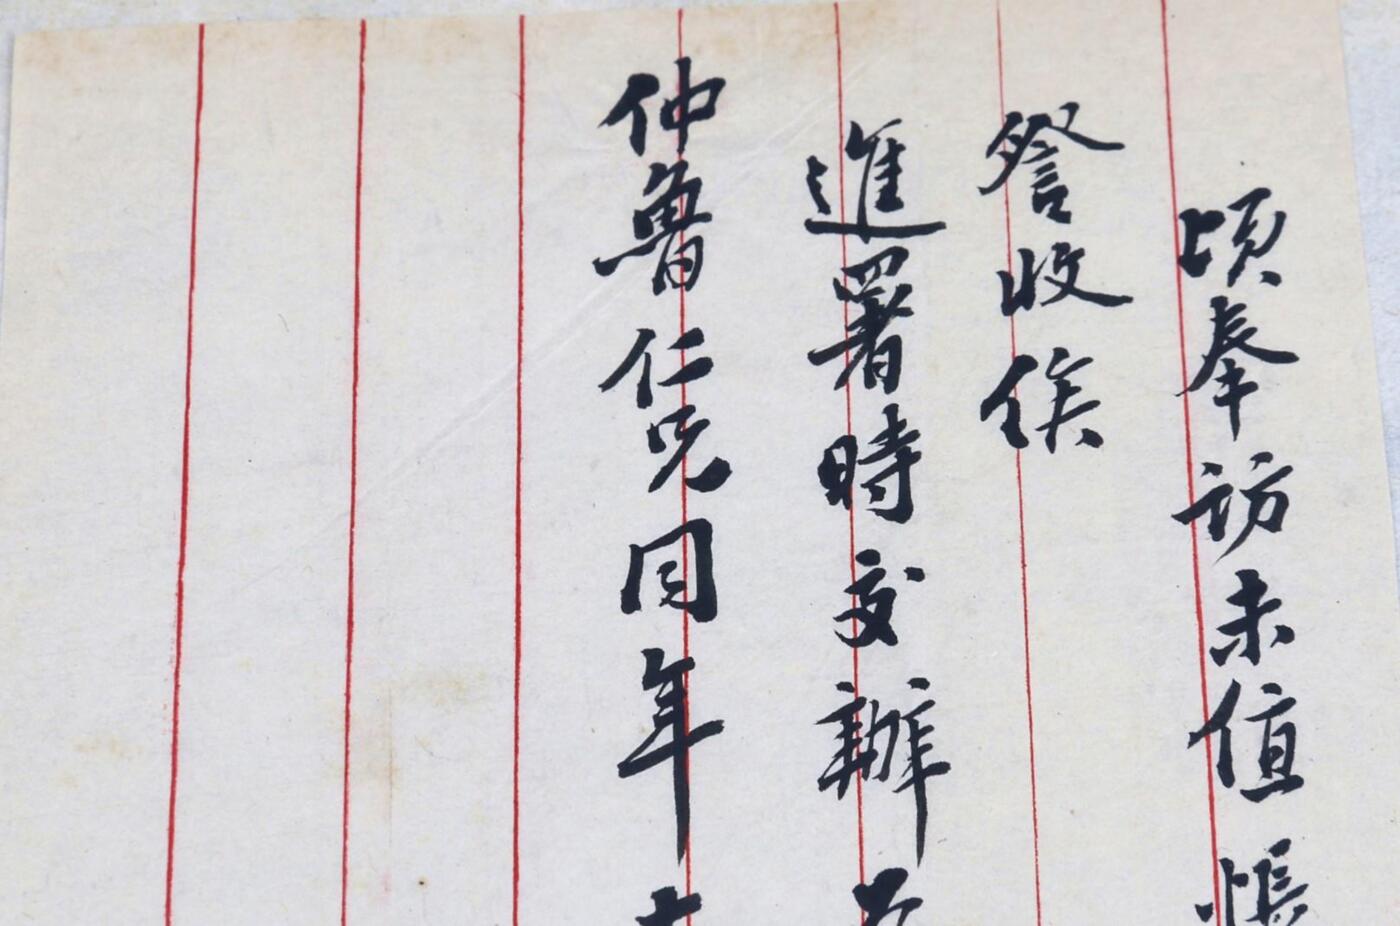 頃奉訪未值悵
詧收俟
進署時交辦
仲魯仁兄同年